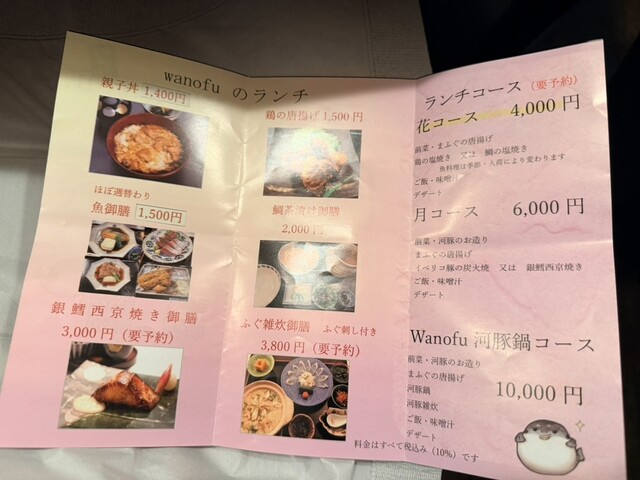 wanofu のランチ
親子丼 1,400円
ほぼ週替わり
魚御膳 1,500円
銀鱈西京焼き御膳
3,000 円（要予約）
鶏の唐揚げ 1,500 円
鯛茶漬け御膳
2,000 円
ふぐ雑炊御膳 ふぐ刺し付き
3,800 円（要予約）
ランチコース（要予約）
花コース 4,000 円
前菜・まふぐの唐揚げ
鶏の塩焼き 又は 鯛の塩焼き
魚料理は季節・入荷により変わります
ご飯・味噌汁
デザート
月コース 6,000 円
前菜・河豚のお造り
まふぐの唐揚げ
イベリコ豚の炭火焼 又は 銀鱈西京焼き
ご飯・味噌汁
デザート
Wanofu 河豚鍋コース
前菜・河豚のお造り
まふぐの唐揚げ
河豚鍋
10,000 円
河豚雑炊
ご飯・味噌汁
デザート
料金はすべて税込み（10%）です